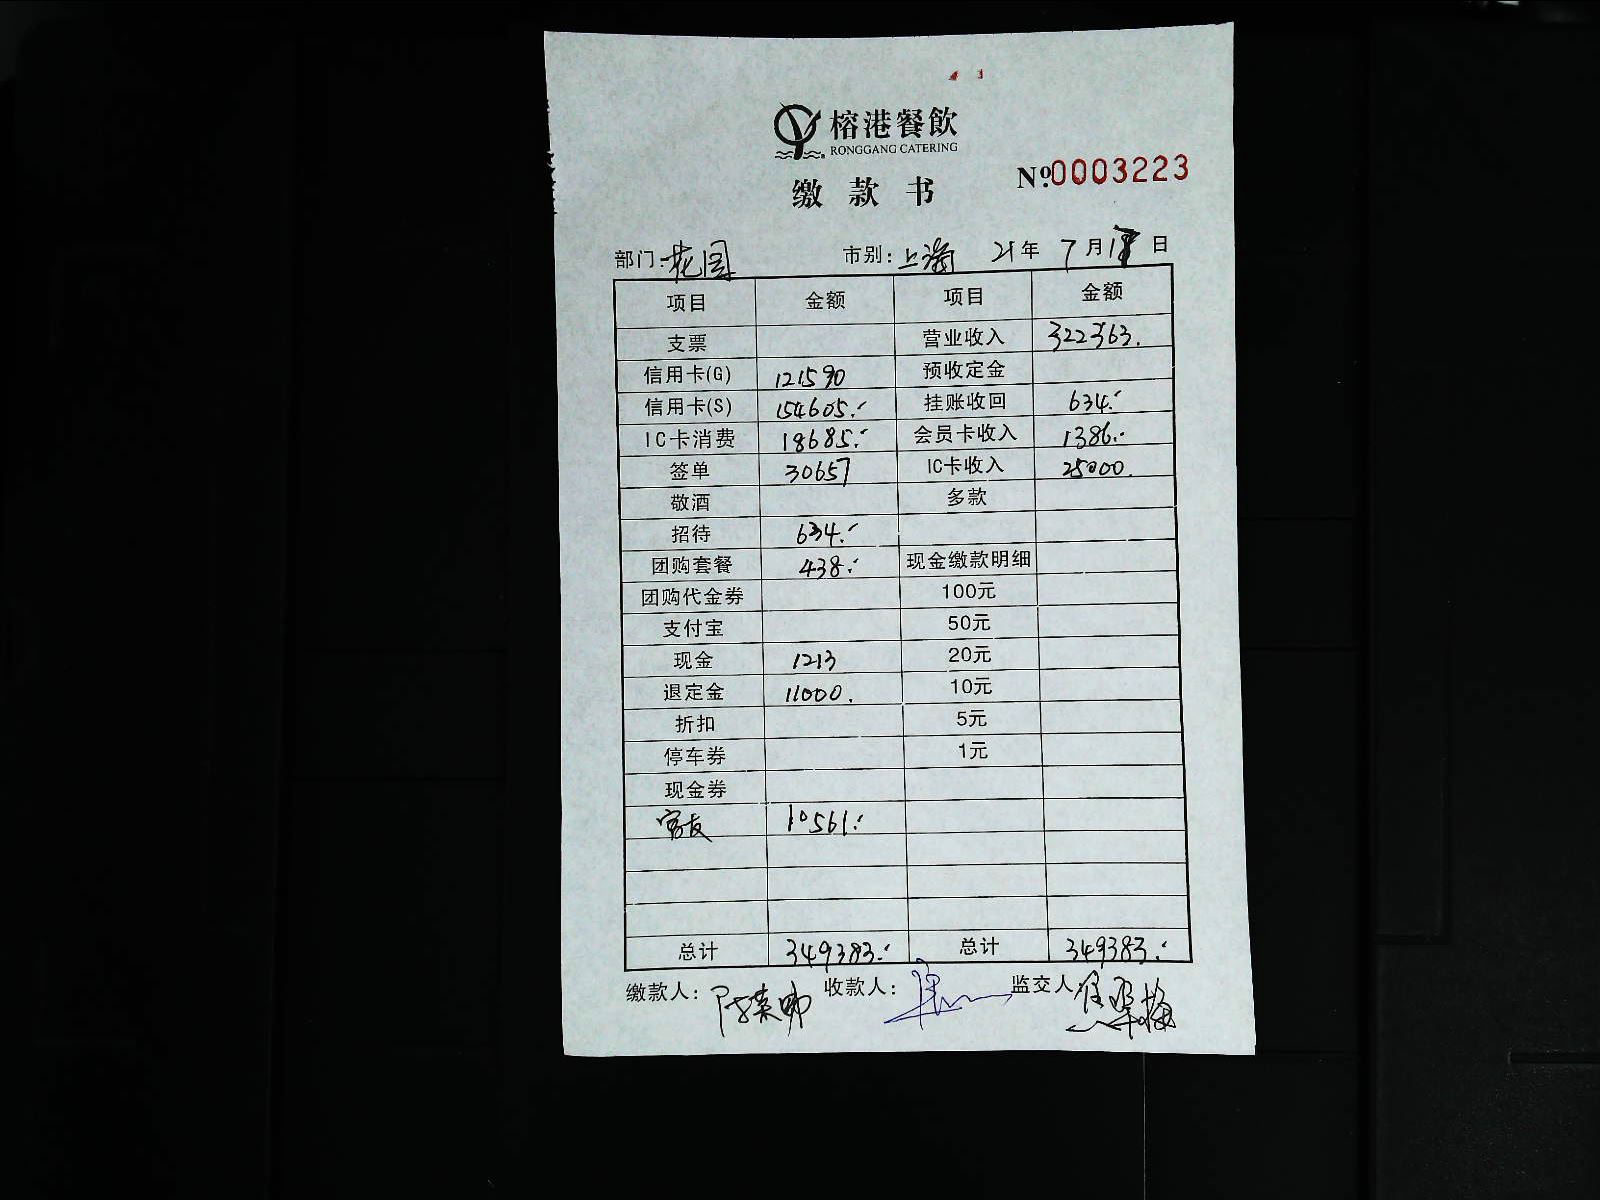 榕港餐飲
RONGGANG CATERING
缴款书
Nº.0003223
部门:花园 市别:上海 21年 7月18日
项目 金额 项目 金额
支票 营业收入 322363.
信用卡(G) 121590 预收定金
信用卡(S) 154605.- 挂账收回 634.-
IC卡消费 18685.- 会员卡收入 1386.-
签单 30657 IC卡收入 25000.
敬酒 多款
招待 634.-
团购套餐 438.- 现金缴款明细
团购代金券 100元
支付宝 50元
现金 1213 20元
退定金 11000. 10元
折扣 5元
停车券 1元
现金券
10561.-
总计 349383.- 总计 349383.-
缴款人: 收款人: 监交人: